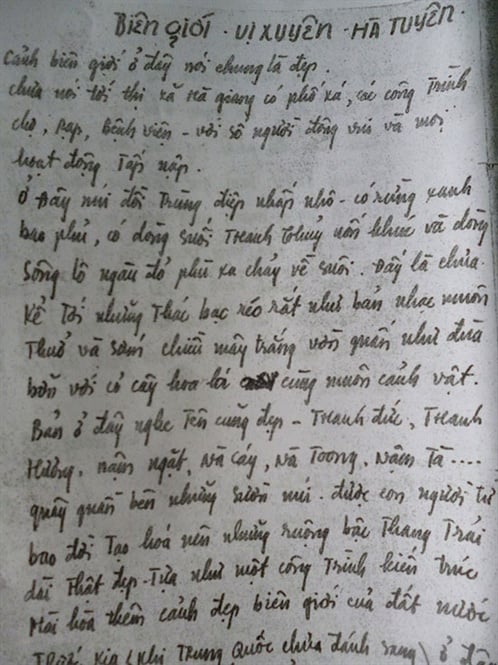 BIÊN GIỚI - VỊ XUYÊN - HÀ TUYÊN.
Cảnh biên giới ở đây nói chung là đẹp.
chưa nói tới thi xã Hà giang có phố xá, các công Trình
chợ, Rạp, Bệnh viện - với số người đông vui và mọi
hoạt động Tấp nập.
Ở Đây núi đồi Trùng điệp nhấp nhô - có rừng xanh
bao phủ, có dòng suối Thanh Thuỷ uốn khúc và dòng
Sông lô ngàu đỏ phù xa chảy về xuôi. Đây là chưa
kể Tới những Thác bạc réo rắt như bản nhạc muôn
Thuở và sớm chiều mây trắng vờn quấn như đùa
bỡn với cỏ cây hoa lá cùng muôn cảnh vật.
Bản ở đây nghe Tên cũng đẹp - Thanh đức, Thanh
Hương, Nậm ngặt, Nà Cáy, Nà Toong, Nậm Tà ....
quây quần bên những sườn núi. được con người từ
bao đời Tạo hoá nên những ruộng bậc Thang Trải
dài Thật đẹp - Tựa như một công Trình kiến trúc
Mài hoà thêm cảnh đẹp biên giới của đất nước
Trước kia (khi Trung Quốc chưa đánh sang) ở